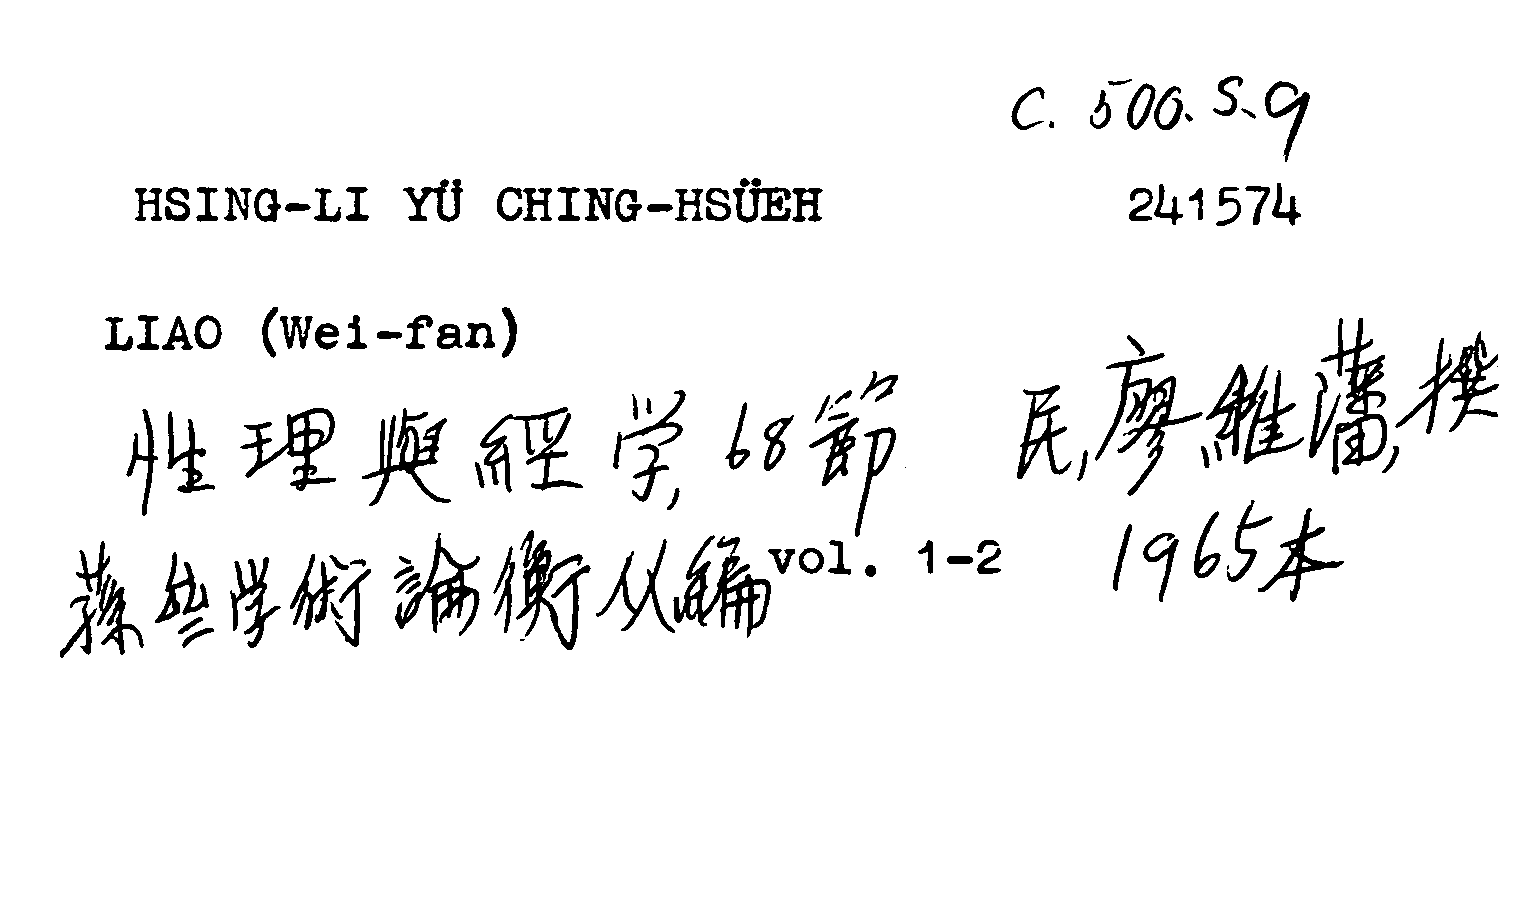 C. 500. S. 9
HSING-LI YÜ CHING-HSÜEH 241574
LIAO (Wei-fan)
性理與經学, 68節 民, 廖維藩, 撰
学術論衡从編 vol. 1-2 1965本